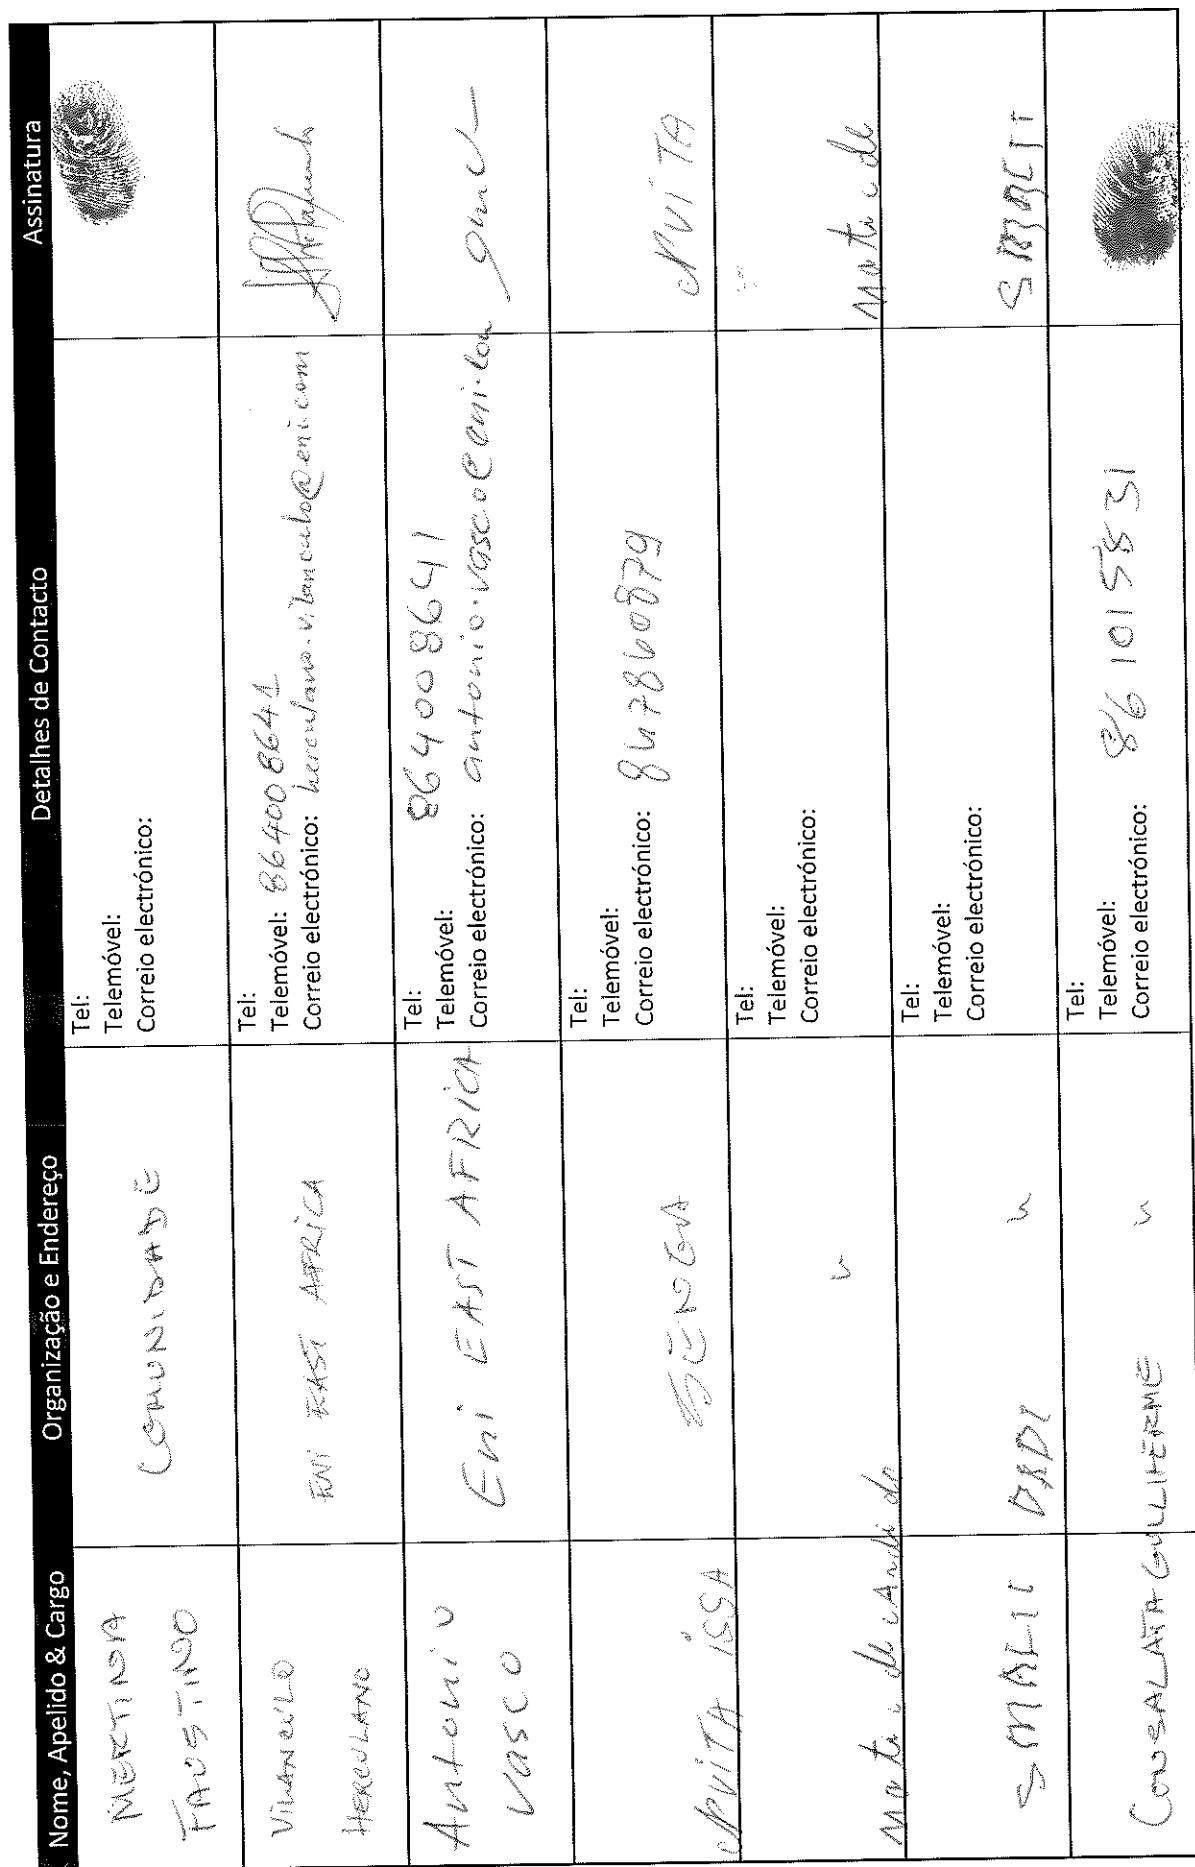 Nome, Apelido & Cargo Organização e Endereço Detalhes de Contacto Assinatura
MERTINA
FAUSTINO
COMUNIDADE
Tel:
Telemóvel:
Correio electrónico:
VILANCULO
HERCULANO
ENI EAST AFRICA
Tel:
Telemóvel: 864008641
Correio electrónico: herculano.vilanculo@eni.com
Antonio
Vasco
Eni EAST AFRICA
Tel:
Telemóvel: 864008641
Correio electrónico: antonio.vasco@eni.com
NVITA ISSA
SENGA
Tel:
Telemóvel:
Correio electrónico: 847860879
NVITA
Tel:
Telemóvel:
Correio electrónico:
SMALII DADI
Tel:
Telemóvel:
Correio electrónico:
CONSALATA GULLIERME
Tel:
Telemóvel: 86 1015831
Correio electrónico: